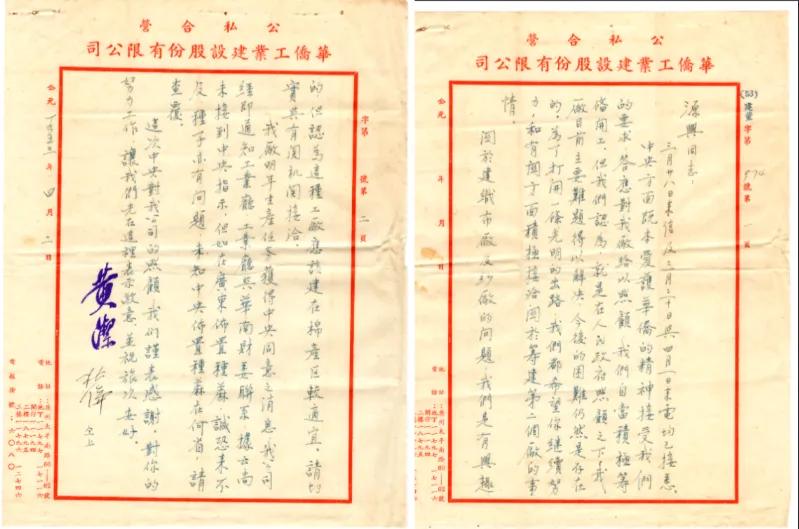 公私合營
華僑工業建設股份有限公司
(53)建業字第 974 號第 一 頁
源興同志:
三月廿八日來信及三月三十日與四月一日來電均已接悉。
中央方面既本愛護華僑的精神接受我們
的要求,答應對我廠給以照顧,我們自當積極籌
備開工,但我們認為,就是在人民政府照顧之下,我
廠目前主要難題得以解決,今後的困難仍然是存在
的,為了打開一條光明的出路,我們都希望你繼續努
力,和有關方面積極接洽關於籌建第二個廠的事
情。
關於建織布廠及紗廠的問題,我們是有興趣
公元 年 月 日
地址:廣州太平南路60—62號
公私合營
華僑工業建設股份有限公司
字第 號第 二 頁
的,但認為這種工廠應該建在棉產區較適宜,請均
實與有關機關接洽。
我廠明年生產任務獲得中央同意之消息,我公司
經即通知工業廳,工業廳與華南財委聯系,據云尚
未接到中央指示,但如在廣東佈置種蔴,誠恐來不
及,種子亦有問題,未知中央佈置種蔴在何省,請
查覆。
這次中央對我公司的照顧,我們謹表感謝,對你的
努力工作,讓我們先在這裡表示致意,並祝旅次安好。
黃潔
公元一九五三年 四 月 二 日
地址:廣州太平南路60—62號
電報掛號:六〇八〇